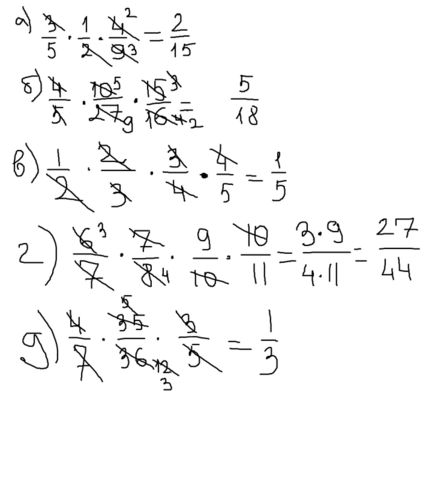 а) 3/5 · 1/2 · 4²/9³ = 2/15
б) 4/5 · 10⁵/27₉ · 15³/16₄₂ = 5/18
в) 1/2 · 2/3 · 3/4 · 4/5 = 1/5
г) 6³/7 · 7/8₄ · 9/10 · 10/11 = 3·9/4·11 = 27/44
д) 4/7 · 35⁵/36₁₂₃ · 3/5 = 1/3